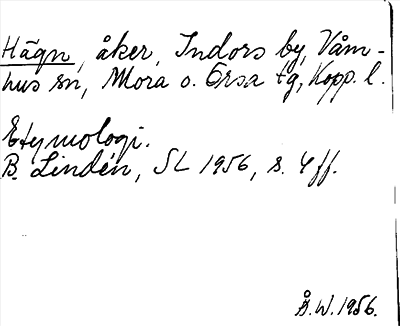 Hägn, åker, Indors by, Våm-
hus sn, Mora o. Orsa tg, Kopp. l.
Etymologi.
B. Lindén, SL 1956, s. 4 ff.
Å.W. 1956.